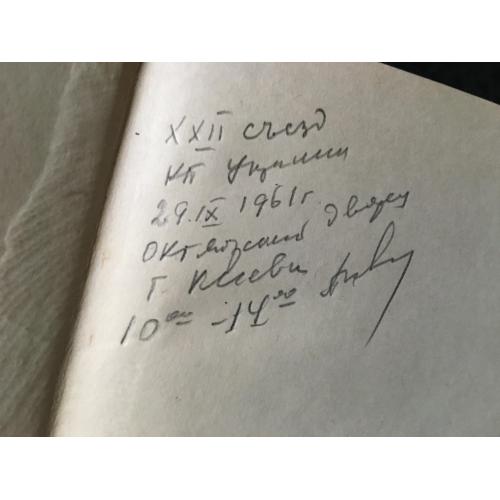 XXII съезд
КП Украины
29.IX 1961 г.
Октябрьский дворец
г. Киев
10⁰⁰ - 14⁰⁰